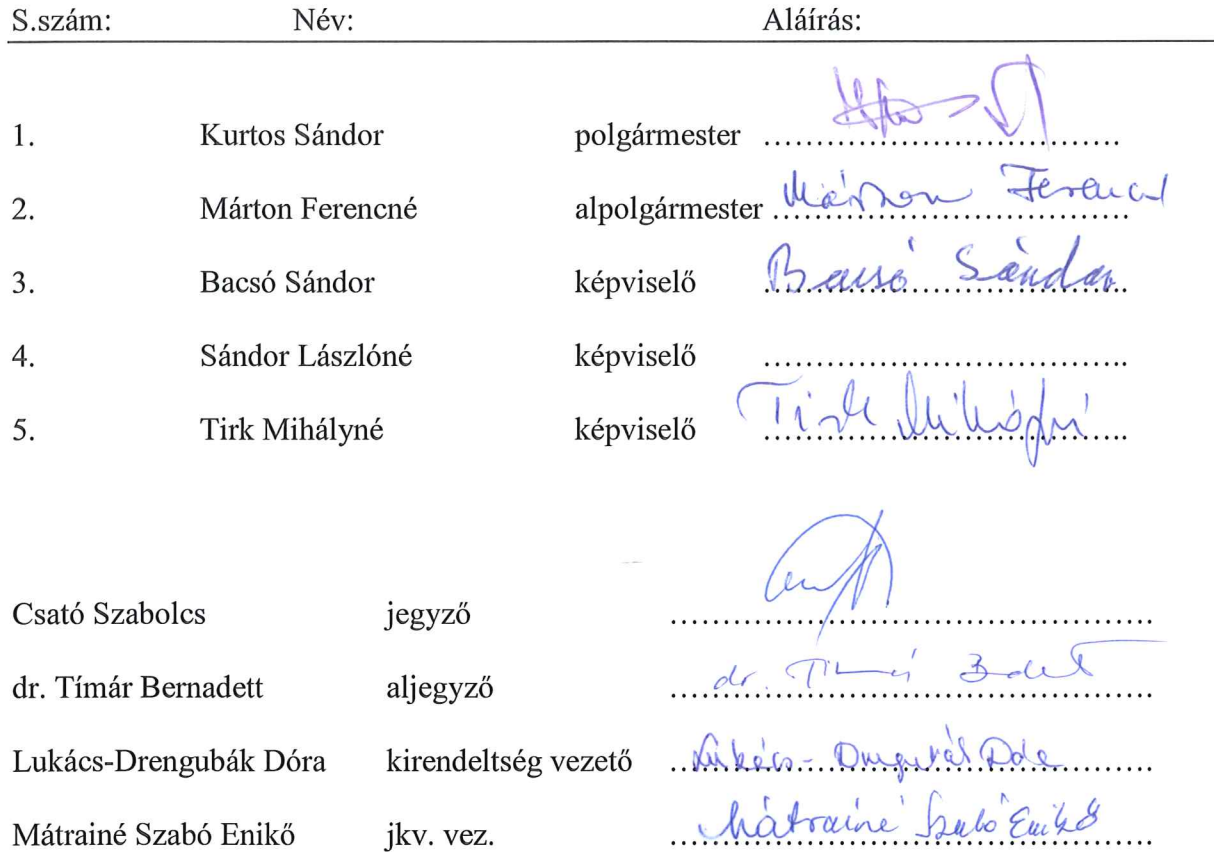 S.szám: Név: Aláírás:
1. Kurtos Sándor polgármester ……………………………
2. Márton Ferencné alpolgármester …………………………… Márton Ferencné
3. Bacsó Sándor képviselő …………………………… Bacsó Sándor
4. Sándor Lászlóné képviselő ……………………………
5. Tirk Mihályné képviselő …………………………… Tirk Mihályné
Csató Szabolcs jegyző ……………………………
dr. Tímár Bernadett aljegyző …………………………… dr. Tímár
Lukács-Drengubák Dóra kirendeltség vezető …………………………… Lukács-Drengubák Dóra
Mátrainé Szabó Enikő jkv. vez. …………………………… Mátrainé Szabó Enikő